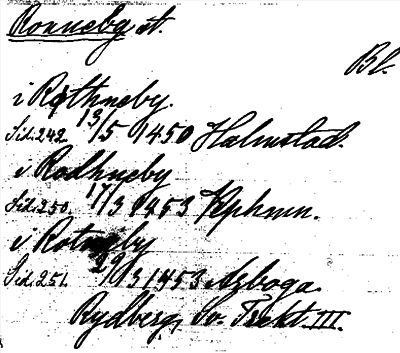 Ronneby st.
Bl.
i Rothneby.
Sid. 242. 13/5 1450 Halmstad.
i Rodhneby
Sid. 250. 17/3 1453 Kephmn.
i Rotneby
Sid. 251. 29/3 1453 Arboga.
Rydberg, Sv. Trakt. III.